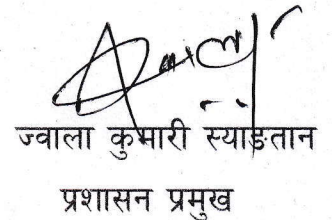 ज्वाला कुमारी स्याङतान
प्रशासन प्रमुख